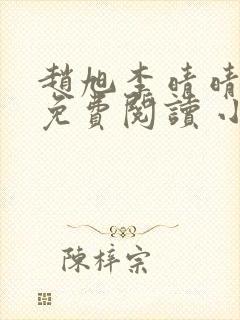 趙旭李晴晴
免費閱讀 小
陳梓宗